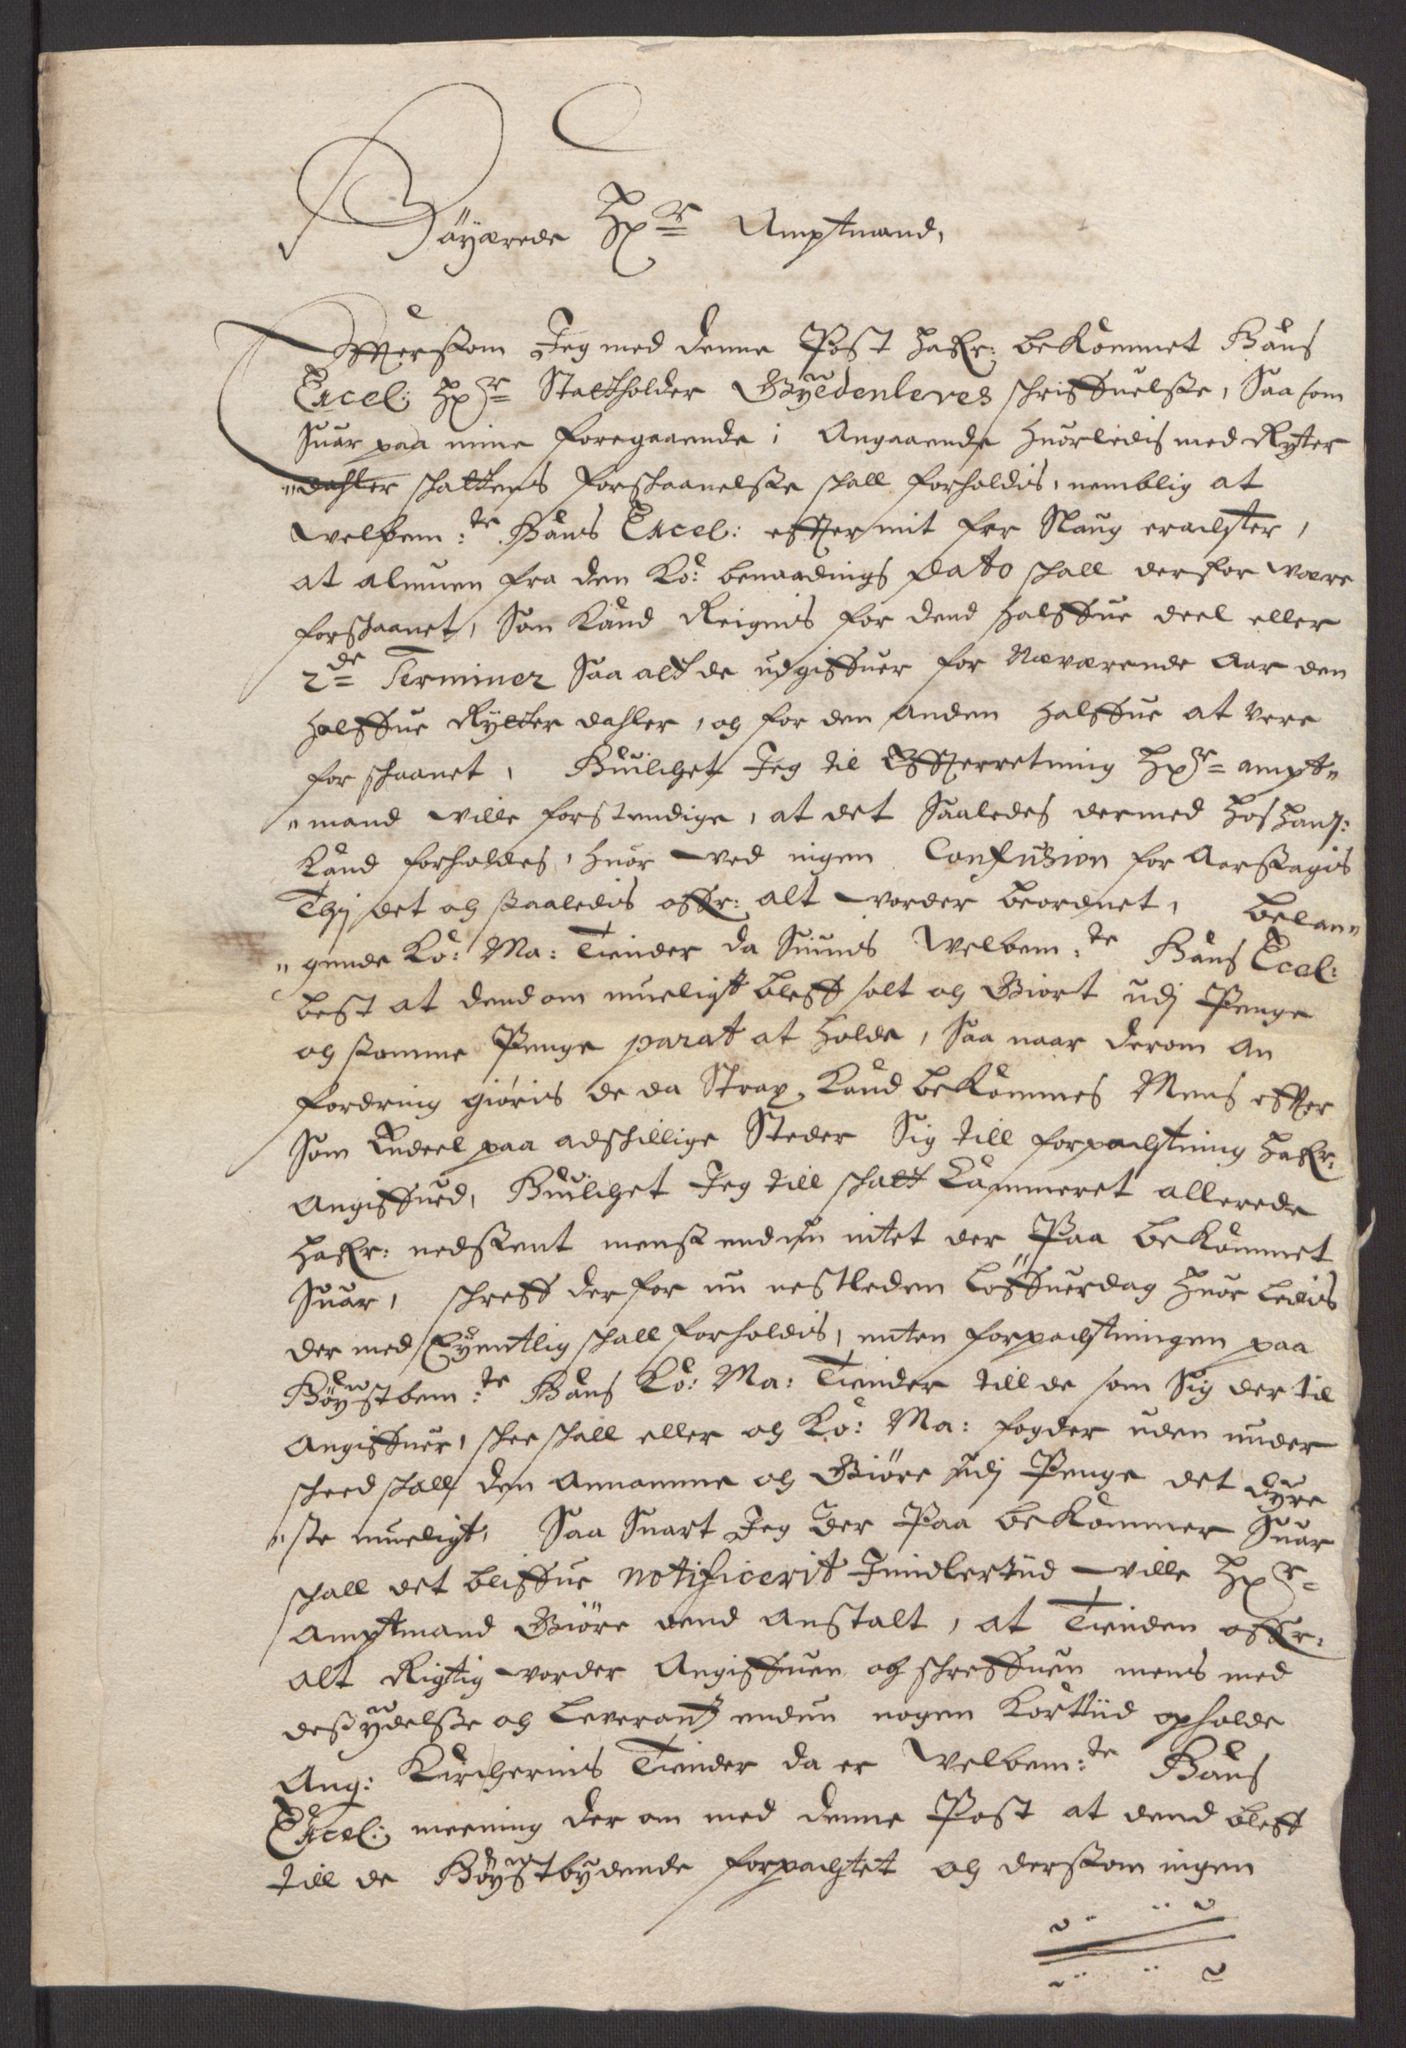 Høyærede Hr Amptmand,
Effterssom Jeg med denne Post hafr: bekommet Hans
Excel: Hr Stattholder Gyldenleves schriffuelsse, Saa som
Suar paa mine foregaaende, Angaaende huorledis med Ryter
"dahler schattens forschaanelsse schall forholdis, nemblig at
Welbem:te Hans Excel: effter mit Slaug erachter,
at almuen fra den Ko: benaadings Dato schall derfor være
forschaanet, Som kand Reignis for dend halffue deel eller
2de Terminer Saa alt de udgiffuer for Næværende Aar den
halffue Rytter dahler, og for den anden halffue at vere
for schaanet, Huilchet Jeg til Effterretning Hr ampt"
"mand wille forstendige, at det Saaledes dermed hos hans:
kand forholdes, huor ved ingen Confusion for Aarssagis
Thj det og ssaaledis offr: alt vorder beordnet, Belan"
"gende Ko: Ma: Tiender da Siunis Welbem:te Hans Ecel:
best at dend om mueligt bleff solt og Giort udj Penge
og ssamme Penge parat at holde, Saa naar derom An
fordring giøris de da Strax kand bekommes Mens effter
Som Endeel paa adschillige Steder Sig till forpachtning hafr:
Angiffued, Huilchet Jeg till schatt Cammeret allerede
hafr: nedssent menss endnu intet der Paa bekommet
Suar, schreff derfor nu nestleden Løffuerdag huor ledis
der med Eyentlig schall forholdis, enten forpachtningen paa
Høystbem:te Hans Ko: Ma: Tiender till de som Sig der til
Angiffuer, schee schall eller og Ko: Ma: fogder uden under
scheed schall den Annamme og Giøre udj Penge det dyre
"ste mueligt, Saa Snart Jeg der Paa bekommer Suar
schall det bliffue notificerit Imidlertiid wille Hr
Amptmand Giøre dend Anstalt, at Tienden offr:
alt Rigtig vorder Angiffuen og schreffuen mens med
dess ydelsse og Leverantz endnu nogen kortiid opholde
Ang: Kirchernis Tiender da er Welbem:te Hans
Excel: meening der om med denne Post at dend bleff
till de Høystbydende forpachtet og derssom ingen